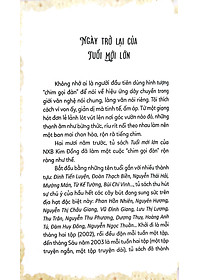 NGÀY TRỞ LẠI CỦA
TUỔI MỚI LỚN
Không nhớ ai là người đầu tiên dùng hình tượng
"chim gọi đàn" để nói về hiệu ứng dây chuyền trong
giới văn nghệ nói chung, làng văn nói riêng. Tôi thích
cách ví von ấy, giản dị mà tinh tế, ấm áp. Từ một giọng
hót đơn lẻ lảnh lót vút lên nơi góc vườn nào đó, những
thanh âm như bừng thức, ríu rít nối theo nhau làm nên
một ban mai chan hòa, rộn rã tiếng chim.
Hai mươi năm trước, tủ sách Tuổi mới lớn của
NXB Kim Đồng đã làm một cuộc "chim gọi đàn" rộn
ràng như thế.
Bắt đầu bằng những tên tuổi gắn với nhiều thành
tựu: Đinh Tiến Luyện, Đoàn Thạch Biền, Nguyễn Thái Hải,
Mường Mán, Từ Kế Tường, Bùi Chí Vinh..., tủ sách thu
hút sự chú ý của hầu hết các cây bút đang sung sức trên
địa hạt đặc biệt này: Phan Hồn Nhiên, Nguyên Hương,
Nguyễn Thị Châu Giang, Vũ Đình Giang, Lưu Thị Lương,
Thu Trân, Nguyễn Thu Phương, Dương Thụy, Hoàng Anh
Tú, Đàm Huy Đông, Nguyễn Ngọc Thuần... Khởi đi là
tháng hai tập (2002), rồi đều đặn mỗi tuần một tập,
đến tháng Sáu năm 2003 là mỗi tuần hai tập (một tập
truyện ngắn, một tập truyện dài), tủ sách đã thành